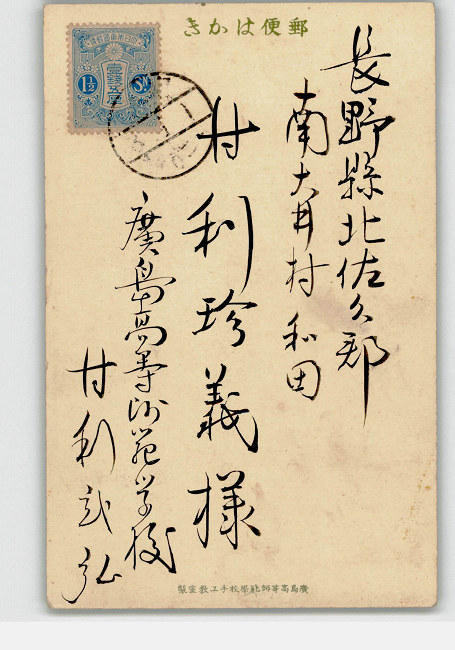 郵便はかき
壹錢五厘
1½ Sⁿ
長野縣北佐久郡
南大井村和田
甘利珍義様
廣島高等師範学校
甘利武弘
廣島高等師範學校手工教室製